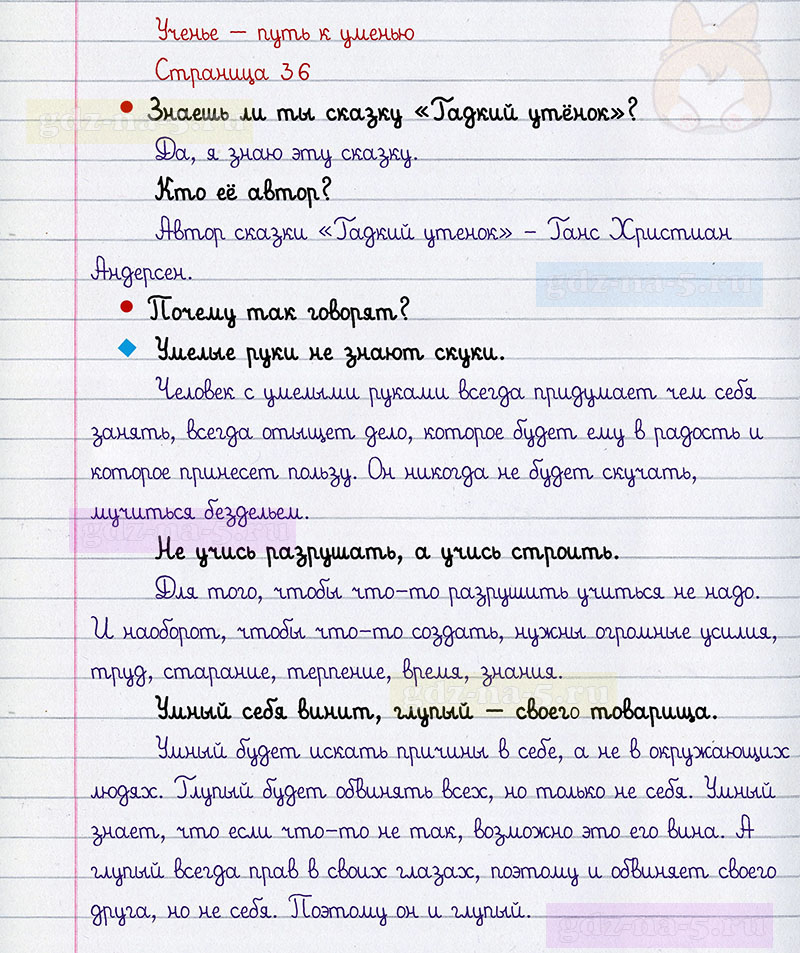 Ученье — путь к уменью
Страница 36
Знаешь ли ты сказку «Гадкий утёнок»?
gdz-na-5.ru
Да, я знаю эту сказку.
Кто её автор?
Автор сказки «Гадкий утенок» – Ганс Христиан
Андерсен.
gdz-na-5.ru
Почему так говорят?
Умелые руки не знают скуки.
Человек с умелыми руками всегда придумает чем себя
занять, всегда отыщет дело, которое будет ему в радость и
которое принесет пользу. Он никогда не будет скучать,
мучиться бездельем.
gdz-na-5.ru
Не учись разрушать, а учись строить.
Для того, чтобы что-то разрушить учиться не надо.
И наоборот, чтобы что-то создать, нужны огромные усилия,
труд, старание, терпение, время, знания.
gdz-na-5.ru
Умный себя винит, глупый — своего товарища.
Умный будет искать причины в себе, а не в окружающих
людях. Глупый будет обвинять всех, но только не себя. Умный
знает, что если что-то не так, возможно это его вина. А
глупый всегда прав в своих глазах, поэтому и обвиняет своего
друга, но не себя. Поэтому он и глупый.
gdz-na-5.ru